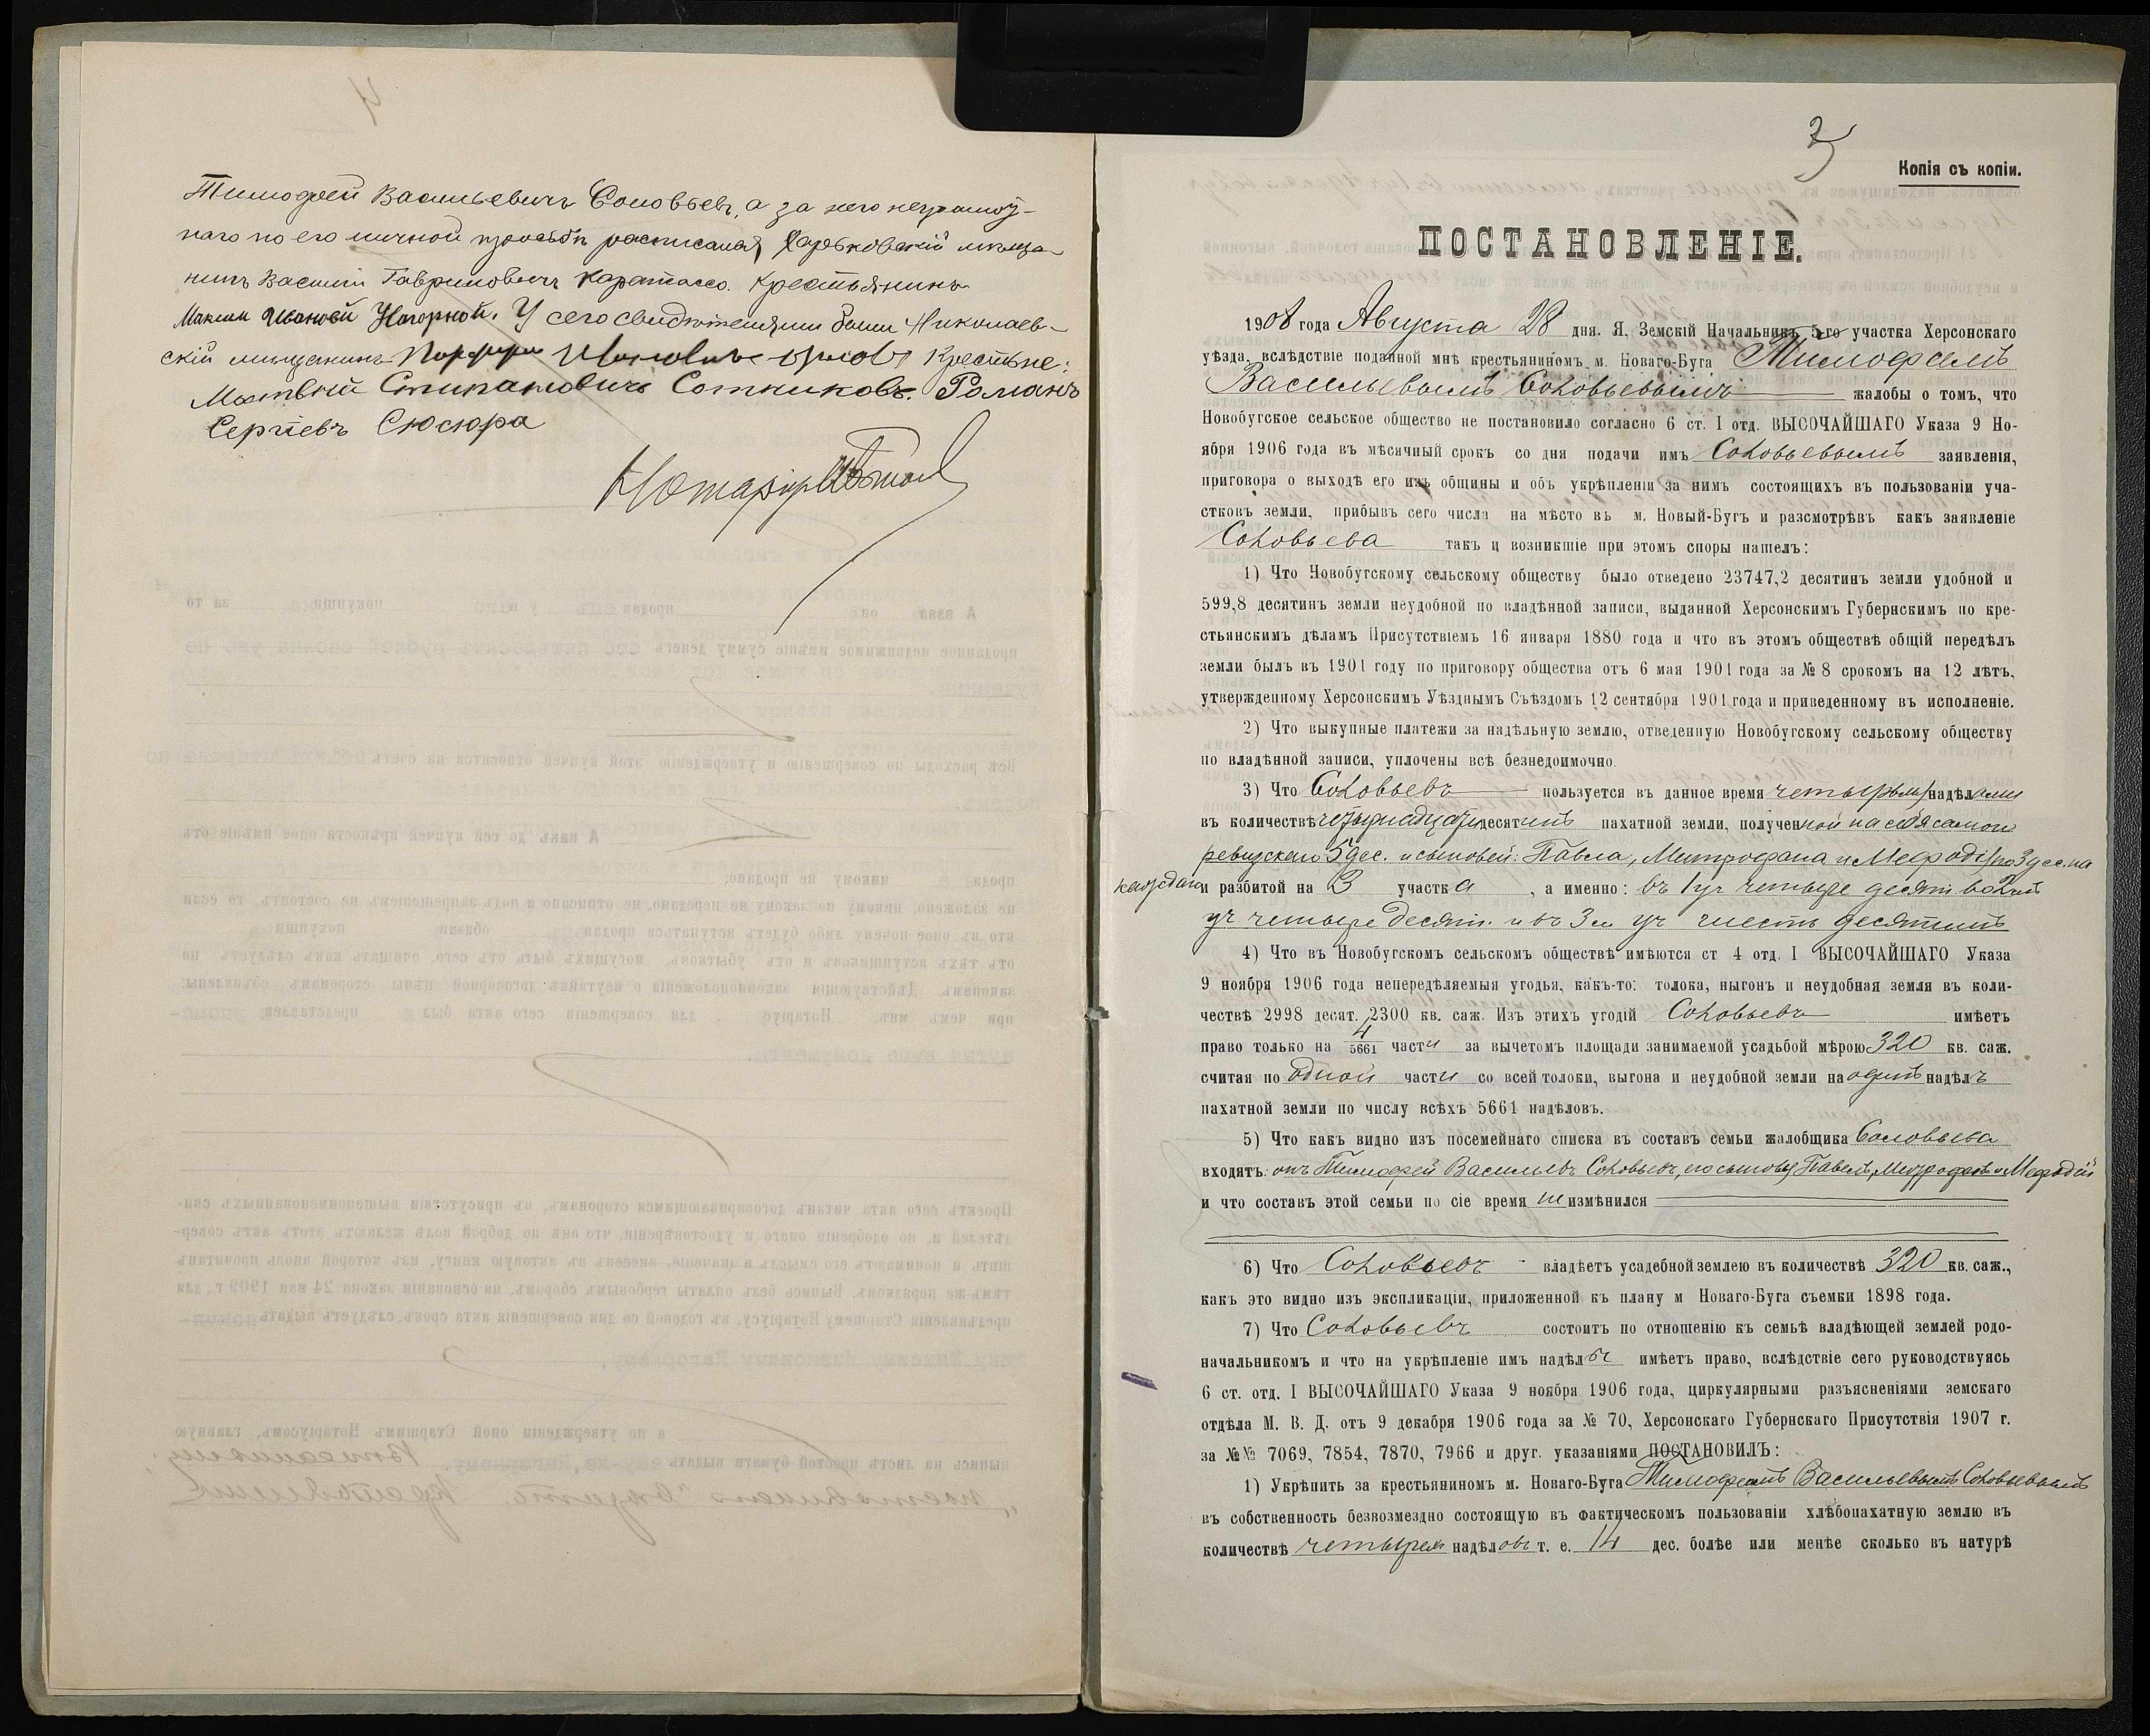 Тимофей Васильевичъ Соловьевъ, а за него неграмот-
наго по его личной просьбѣ росписался Харьковскій мѣща-
нинъ Василій Гавриловичъ Каратассо. Крестьянинъ
Максим Ивановъ Нагорной. У сего свидѣтелями были Николаев-
скій мѣщанинъ Порфири Крестьяне:
Матвѣй Степановичъ Сотниковъ. Романъ
Сергѣевъ Сюсюра
Нотаріусъ
3
Копія съ копіи.
ПОСТАНОВЛЕНІЕ.
1908 года Августа 28 дня. Я, Земскій Начальникъ 5-го участка Херсонскаго
уѣзда, вслѣдствіе поданной мнѣ крестьяниномъ м. Новаго-Буга Тимофеемъ
Васильевымъ Соловьевымъ жалобы о томъ, что
Новобугское сельское общество не постановило согласно 6 ст. I отд. ВЫСОЧАЙШАГО Указа 9 Но-
ября 1906 года въ мѣсячный срокъ со дня подачи имъ Соловьевымъ заявленія,
приговора о выходѣ его изъ общины и объ укрѣпленіи за нимъ состоящихъ въ пользованіи уча-
стковъ земли, прибывъ сего числа на мѣсто въ м. Новый-Бугъ и разсмотрѣвъ какъ заявленіе
Соловьева такъ и возникшіе при этомъ споры нашелъ:
1) Что Новобугскому сельскому обществу было отведено 23747,2 десятинъ земли удобной и
599,8 десятинъ земли неудобной по владѣнной записи, выданной Херсонскимъ Губернскимъ по кре-
стьянскимъ дѣламъ Присутствіемъ 16 января 1880 года и что въ этомъ обществѣ общій передѣлъ
земли былъ въ 1901 году по приговору общества отъ 6 мая 1901 года за № 8 срокомъ на 12 лѣтъ,
утвержденному Херсонскимъ Уѣзднымъ Съѣздомъ 12 сентября 1901 года и приведенному въ исполненіе.
2) Что выкупные платежи за надѣльную землю, отведенную Новобугскому сельскому обществу
по владѣнной записи, уплочены всѣ безнедоимочно.
3) Что Соловьевъ пользуется въ данное время четырьмя надѣлами
въ количествѣ четырнадцати десятинъ пахатной земли, полученной на себя самого
ревизскаго 5 дес. и сыновей: Павла, Митрофана и Мефодія по 3 дес. на
каждаго и разбитой на 3 участка, а именно: въ 1 уч четыре десят. во 2мъ
уч четыре десят. и въ 3 м уч шесть десятинъ
4) Что въ Новобугскомъ сельскомъ обществѣ имѣются ст 4 отд. I ВЫСОЧАЙШАГО Указа
9 ноября 1906 года непередѣляемыя угодья, какъ-то: толока, ныгонъ и неудобная земля въ коли-
чествѣ 2998 десят. 2300 кв. саж. Изъ этихъ угодій Соловьевъ имѣетъ
право только на 4/5661 части за вычетомъ площади занимаемой усадьбой мѣрою 320 кв. саж.
считая по одной части со всей толоки, выгона и неудобной земли на одинъ надѣлъ
пахатной земли по числу всѣхъ 5661 надѣловъ.
5) Что какъ видно изъ посемейнаго списка въ составъ семьи жалобщика Соловьева
входятъ: онъ Тимофей Васильевъ Соловьевъ, его сыновья Павелъ, Митрофанъ и Мефодій
и что составъ этой семьи по сіе время не измѣнился
6) Что Соловьевъ владѣетъ усадебной землею въ количествѣ 320 кв. саж.,
какъ это видно изъ экспликаціи, приложенной къ плану м Новаго-Буга съемки 1898 года.
7) Что Соловьевъ состоитъ по отношенію къ семьѣ владѣющей землей родо-
начальникомъ и что на укрѣпленіе имъ надѣлы имѣетъ право, вслѣдствіе сего руководствуясь
6 ст. отд. I ВЫСОЧАЙШАГО Указа 9 ноября 1906 года, циркулярными разъясненіями земскаго
отдѣла М. В. Д. отъ 9 декабря 1906 года за № 70, Херсонскаго Губернскаго Присутствія 1907 г.
за №№ 7069, 7854, 7870, 7966 и друг. указаніями ПОСТАНОВИЛЪ:
1) Укрѣпить за крестьяниномъ м. Новаго-Буга Тимофеемъ Васильевымъ Соловьевымъ
въ собственность безвозмездно состоящую въ фактическомъ пользованіи хлѣбопахатную землю въ
количествѣ четырехъ надѣловъ т. е. 14 дес. болѣе или менѣе сколько въ натурѣ